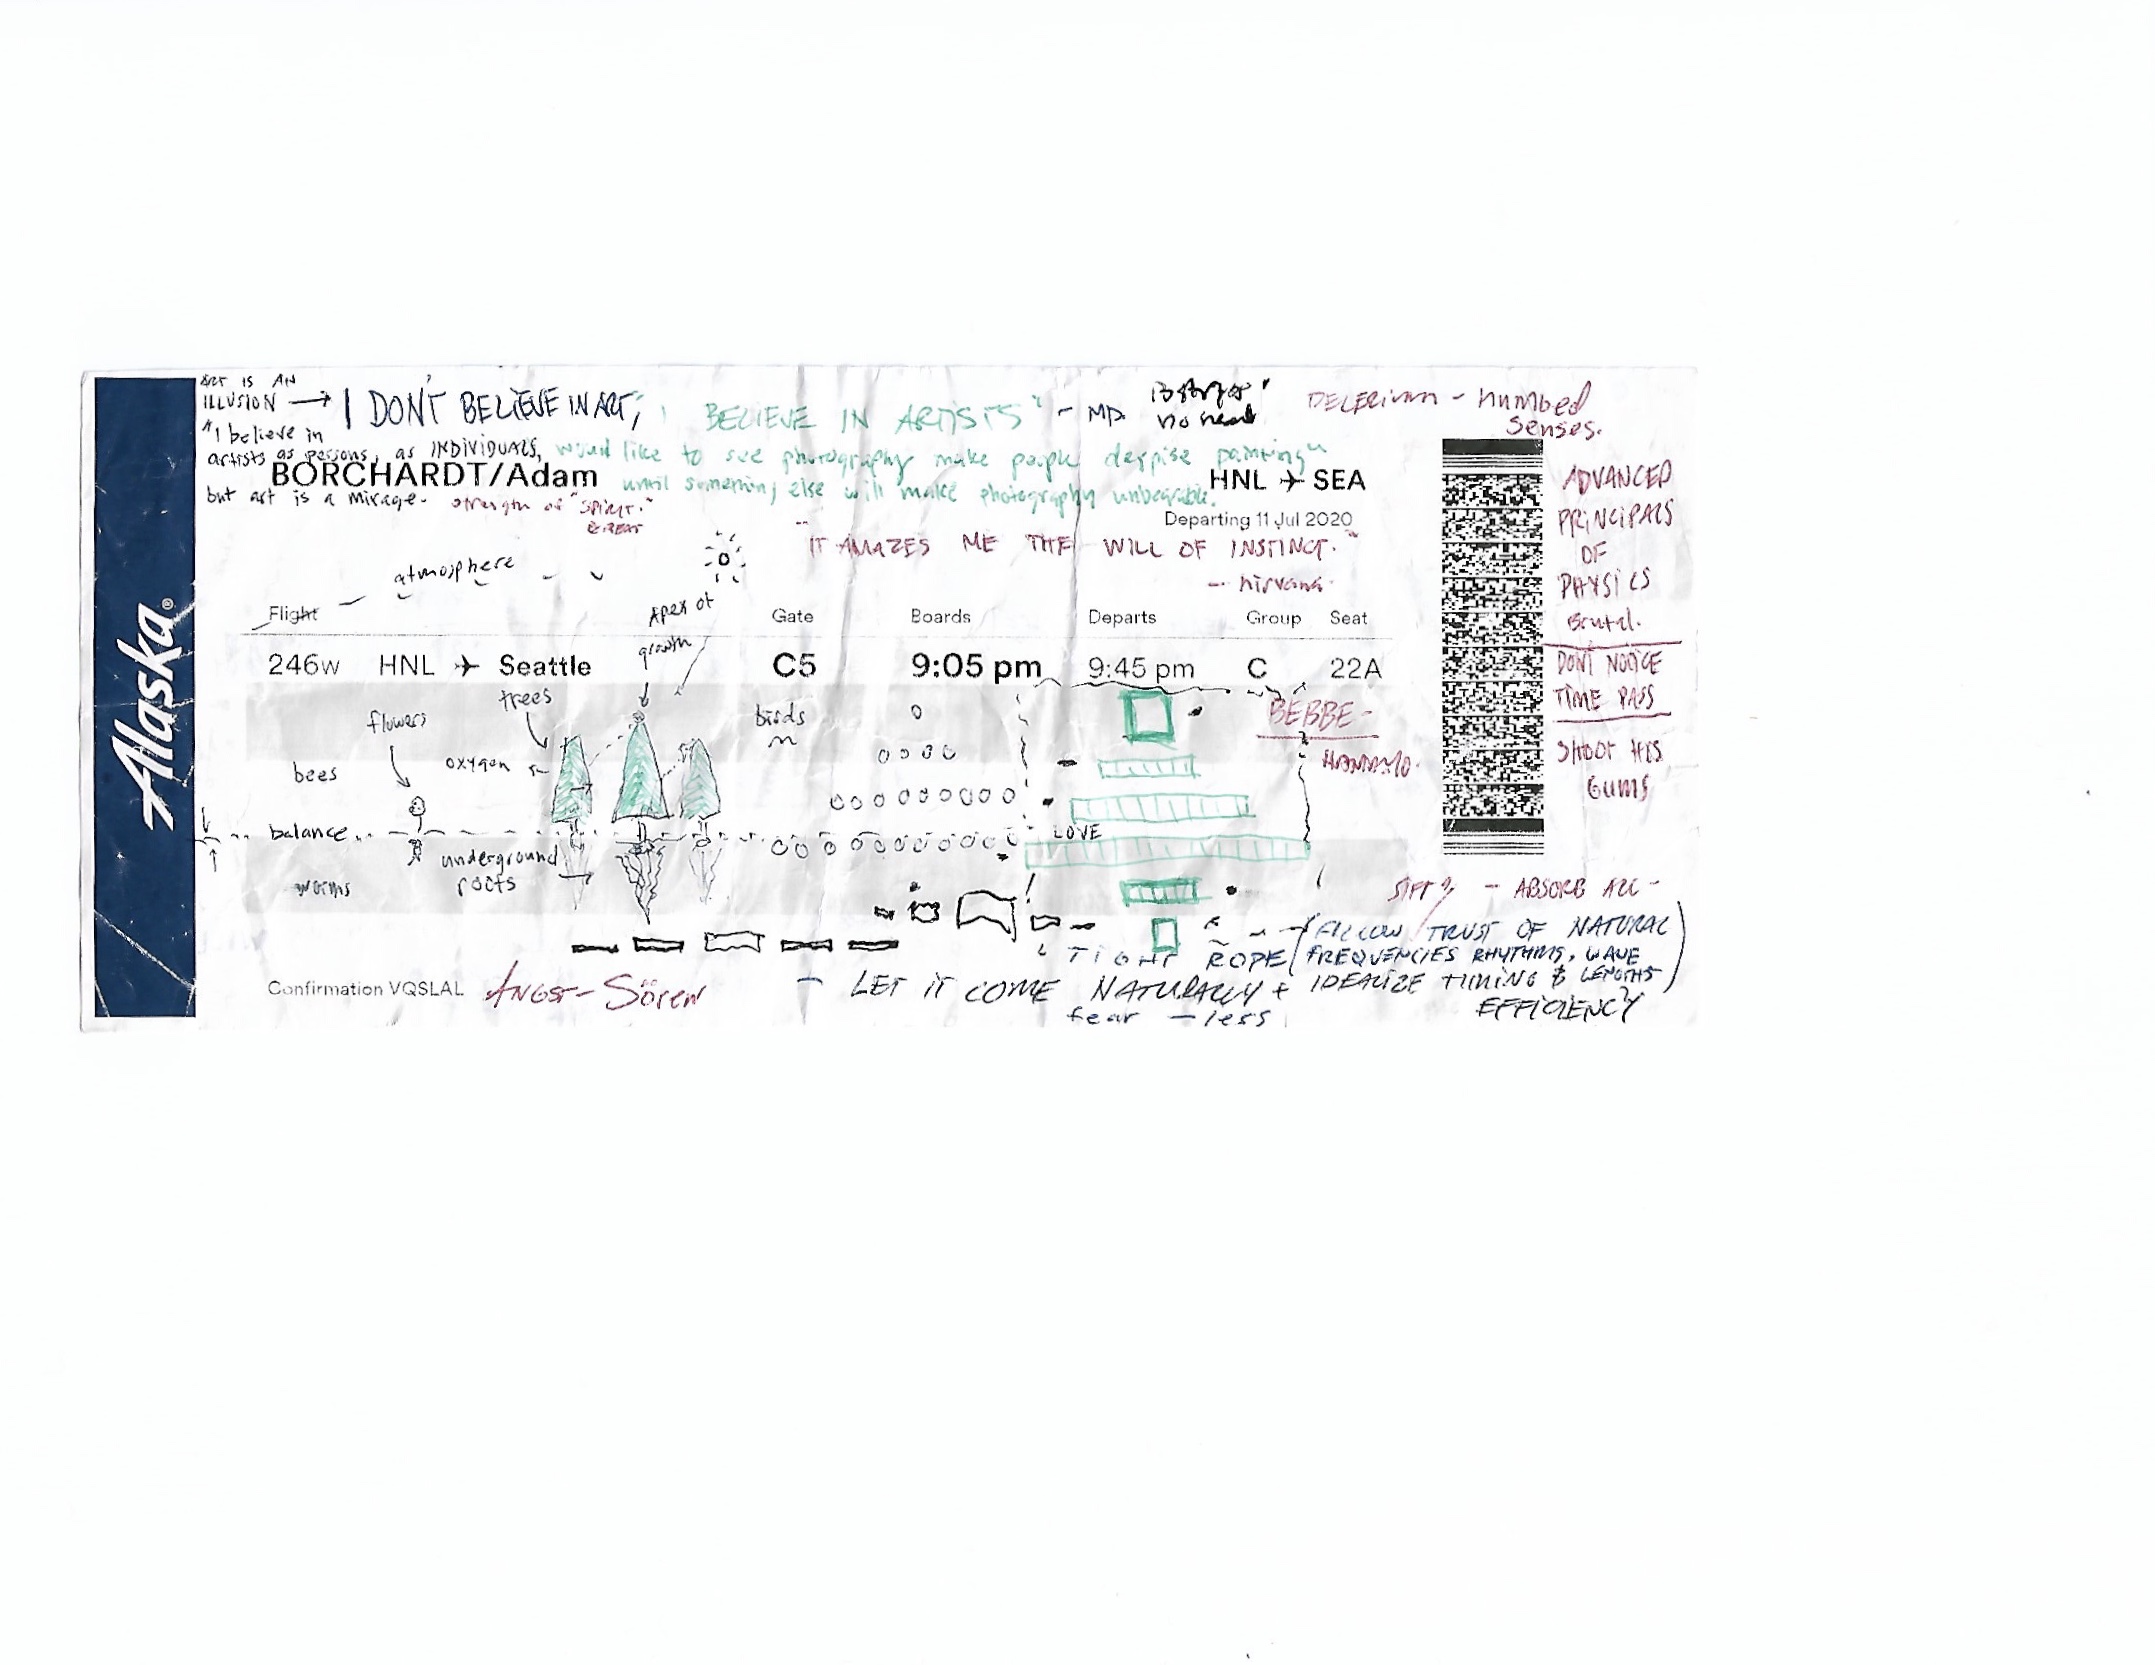 ART IS AN
ILLUSION → I DON'T BELIEVE IN ART, I BELIEVE IN ARTISTS" - MD.
no
DELERIUM - numbed
senses.
"I believe in
artists as persons, as INDIVIDUALS, would like to see photography make people despise painting
BORCHARDT/Adam until something else will make photography unbearable.
HNL ✈ SEA
but art is a mirage. strength of "SPIRIT."
Departing 11 Jul 2020
"IT AMAZES ME THE WILL OF INSTINCT."
- nirvana.
atmosphere
apex of
growth
Flight Gate Boards Departs Group Seat
246w HNL ✈ Seattle C5 9:05 pm 9:45 pm C 22A
Alaska®
trees
flowers
birds
BEBBE -
bees
oxygen
balance
LOVE
underground
roots
worms
ADVANCED
PRINCIPALS
OF
PHYSICS
Brutal.
DONT NOTICE
TIME PASS
SHOOT HIS
GUMS
- ABSORB ALL -
TRUST OF NATURAL
TIGHT ROPE (FREQUENCIES RHYTHMS, WAVE
LENGTHS)
Confirmation VQSLAL ANGST - Sören
- LET IT COME NATURALLY + IDEALIZE TIMING &
EFFICIENCY
fear - less